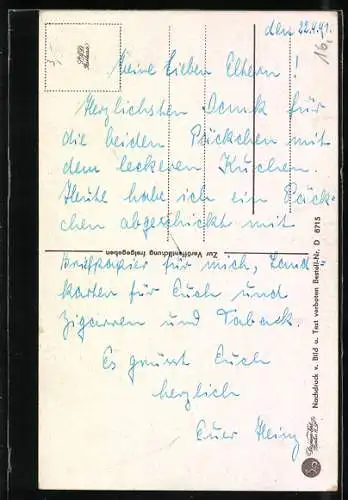 den 22.4.41.
16,-
Meine Lieben Eltern!
Herzlichsten Dank für
die beiden Päckchen mit
dem leckeren Kuchen.
Heute habe ich ein Päck-
chen abgeschickt mit
Briefpapier für mich, Land-
karten für Euch und
Zigarren und Taback.
Es grüsst Euch
herzlich
Euer Heinz
Zur Veröffentlichung freigegeben
Nachdruck v. Bild u. Text verboten Bestell-Nr. D 6715